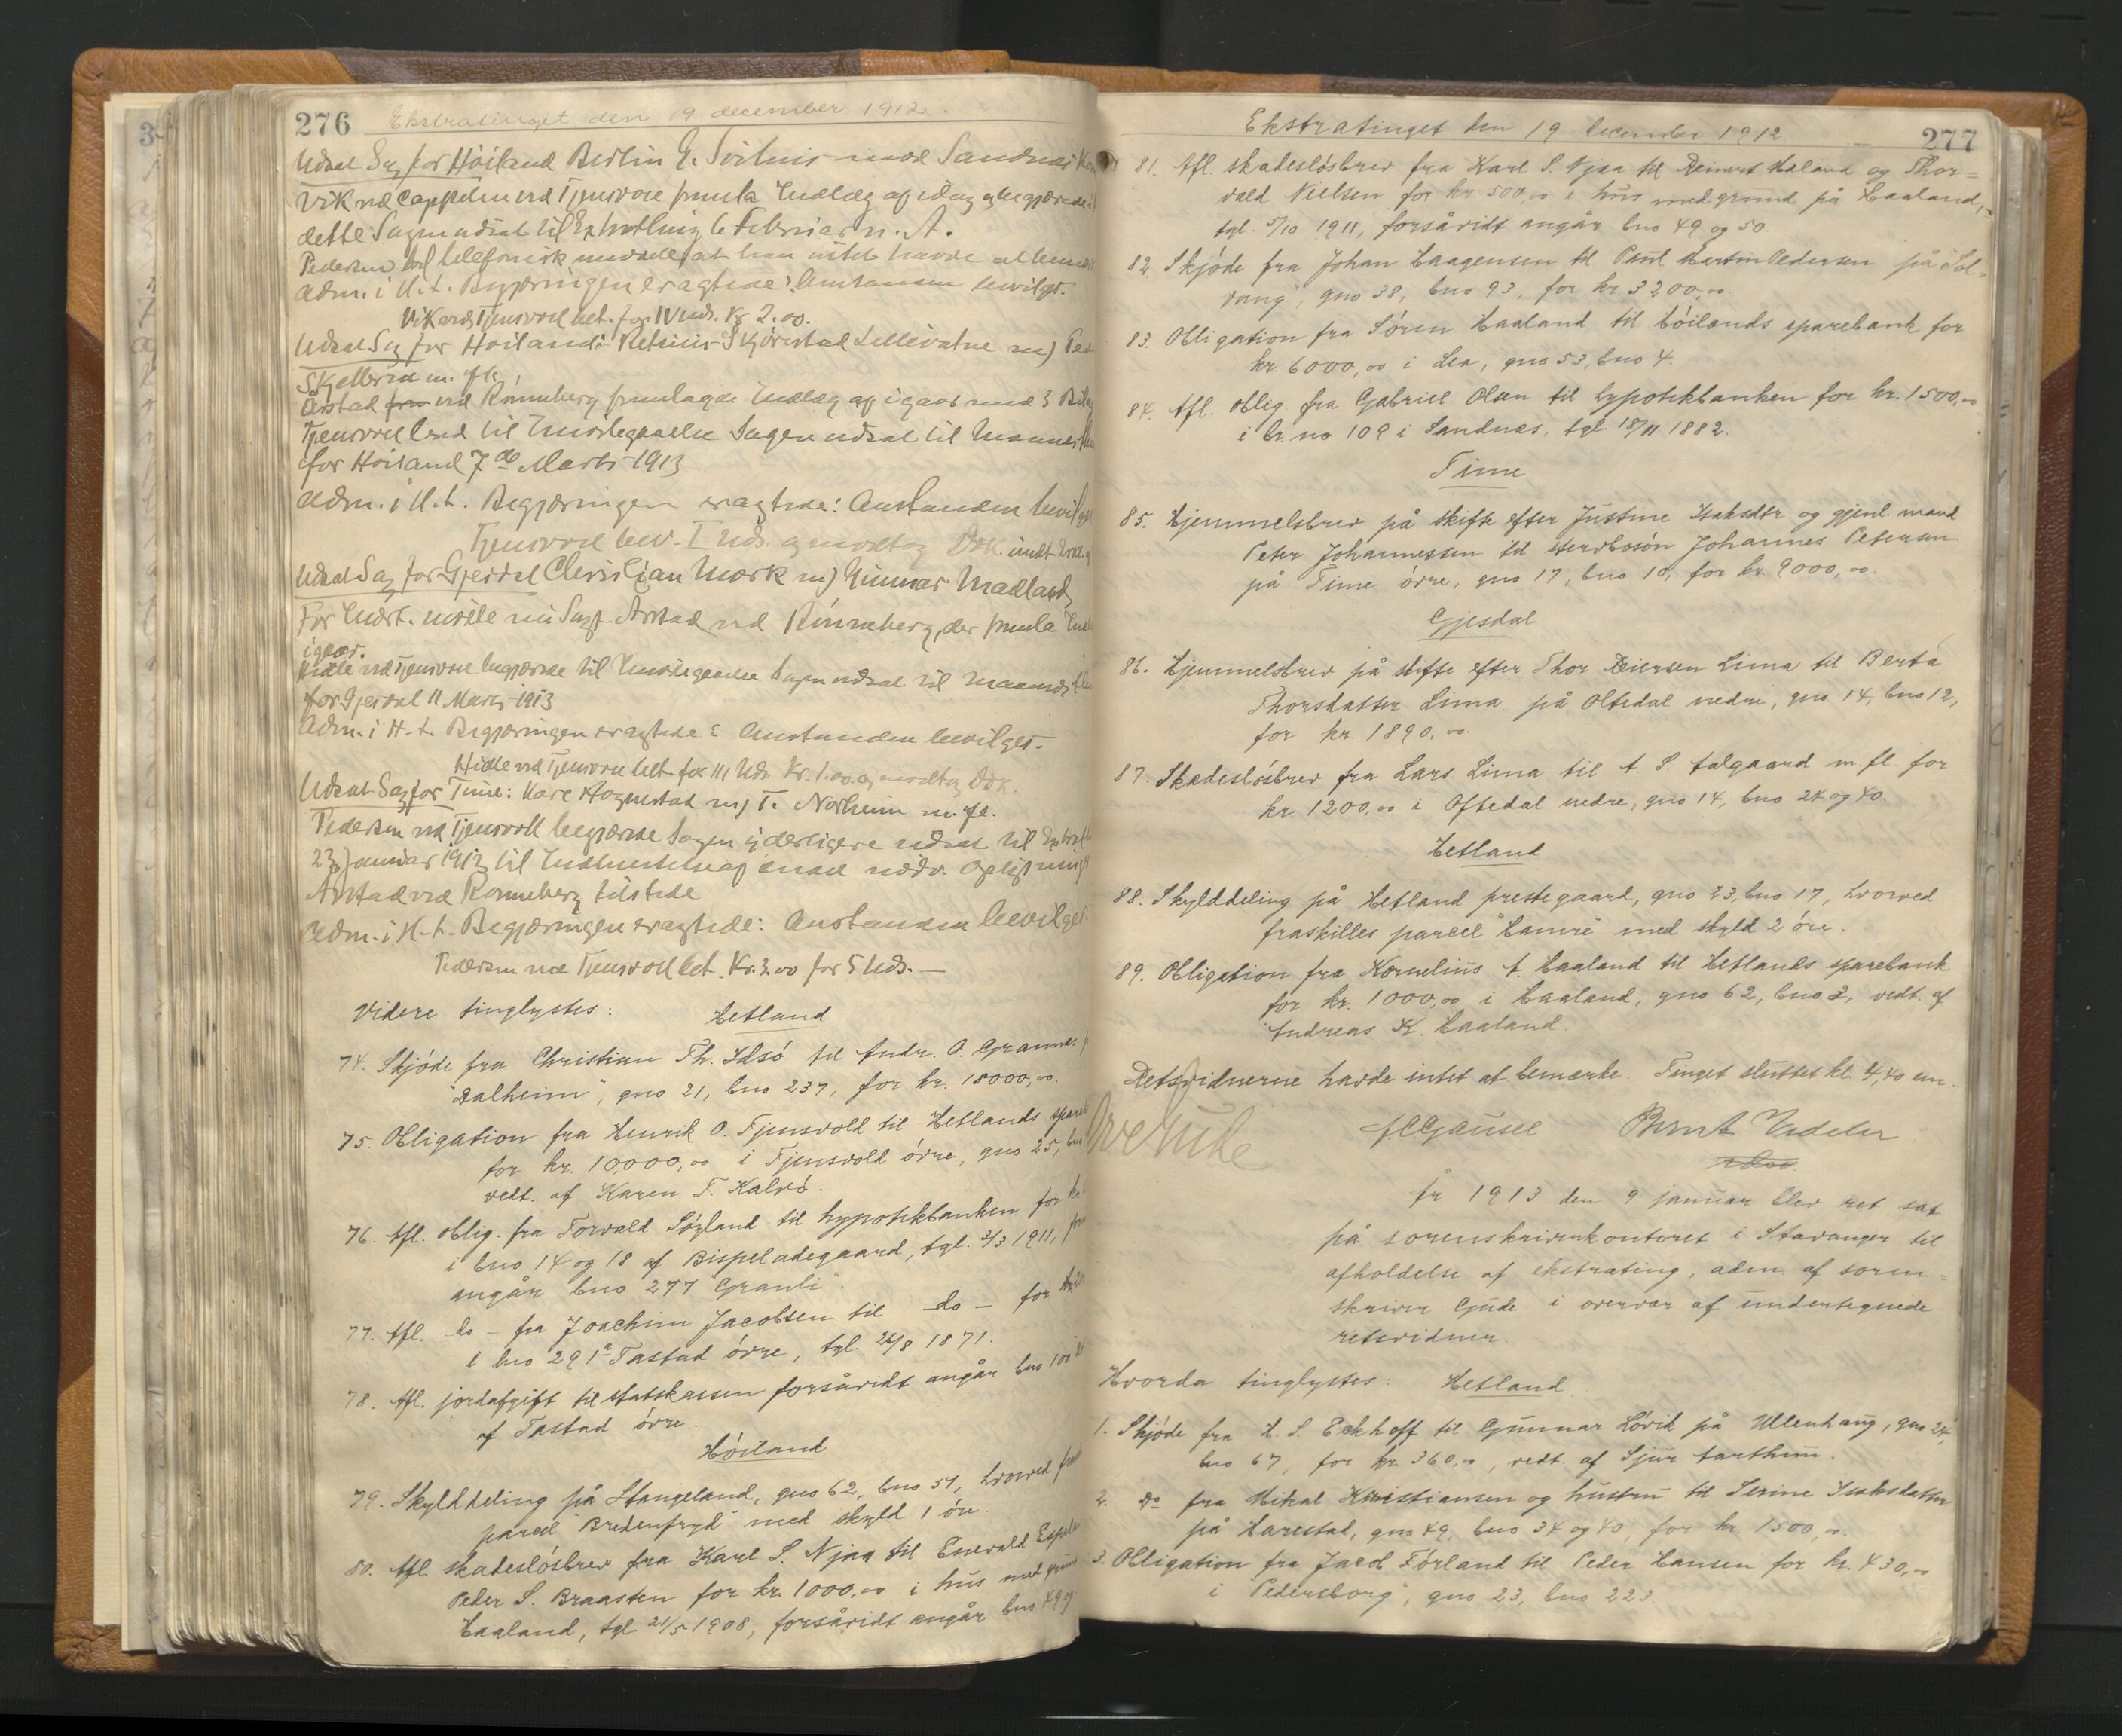 276 Ekstratinget den 19 december 1912.
Udsat Sag for Höiland Berlin G. Soitnis mod Sandnæs
Vik ved Cappelen ved Tjensvold fremla Indlæg af idag og begjærede
dette Sagen udsat til Extrathing 6 Februar n. A.
Pedersen lod telefonisk meddele at han intet havde at bemærke
Adm. i H.t. Begjæringen eragtede: Anstanden bevilges.
Vik ved Tjensvoll bet. for IV Uds. Kr 2.00.
Udsat Sag for Höiland: Skjörestad Lillevatne m)
Skjelbred m. fl.
Aarstad ved Rönneberg fremlagde Indlæg af igaar med 3 Bilag
Tjensvoll hertil Imødegaaelse Sagen udsat til Maaneds
for Höiland 7de Marts 1913
Adm. i H.t. Begjæringen eragtede: Anstanden bevilges
Tjensvoll bet. I Uds. og modtog Dok.
Udsat Sag for Gjesdal Christian Mørk m) Gunnar Madland,
For Indst. mødte nu Sagf. Arstad ved Rönneberg, der fremla
igaar.
Hidle ved Tjensvoll begjærede til Imødegaaelse Sagen udsat til Maaneds
for Gjesdal 11 Marts 1913
Adm. i H.t. Begjæringen eragtede: Anstanden bevilges.
Hidle ved Tjensvoll bet. for III Uds Kr. 1.00 og modtog Dok.
Udsat Sag for Time: Kare Hognestad m) T. Norheim m. fl.
Pedersen ved Tjensvoll begjærede Sagen yderligere udsat til Extrath
23 Januar 1913 til Indhentelse af endel nødv. Oplysning
Arstad ved Rönneberg tilstede
Adm. i H.t. Begjæringen eragtede: Anstanden bevilges.
Pedersen ved Tjensvoll bet. Kr. 2.00 for 5 Uds. —
Videre tinglystes: Hetland
74. Skjöde fra Christian Th. Idsö til Andr. O. Grannes
"Dalheim", gno 21, bno 237, for kr. 18000,00.
75. Obligation fra Henrik O. Tjensvold til Hetlands spare
for kr. 10,000,00 i Tjensvold övre, gno 25, bno
vedt. af Karen T. Kalvö.
76. Afl. oblig. fra Torvald Söyland til hypotekbanken for kr.
i bno 14 og 18 af Bispeladegaard, tgl. 3/3 1911,
angår bno 277 "Granli".
77. Afl. do – fra Joachim Jacobsen til – do – for
i bno 291a Tastad övre, tgl. 26/8 1871.
78. Afl. jordafgift til statskassen forsåvidt angår bno 100
af Tastad övre.
Höiland
79. Skylddeling på Stangeland, gno 62, bno 51, hvorved
parcel "Bredenfryd" med skyld 1 öre.
80. Afl. skadeslösbrev fra Karl S. Njaa til Enevald
Peder S. Braasten for kr. 1000,00 i hus med grund
Haaland, tgl. 21/5 1908, forsåvidt angår bno 49 og
Ekstratinget den 19 december 1912 277
81. Afl. skadeslösbrev fra Karl S. Njaa til Reinert Haland og Thor=
vald Nielsen for kr. 500,00 i hus med grund på Haaland,
tgl. 5/10 1911, forsåvidt angår bno 49 og 50.
82. Skjöde fra Johan Haagensen til Paul Martin Pedersen på "Sol=
vang", gno 38, bno 93, for kr 3200,00.
83. Obligation fra Sören Haaland til Höilands sparebank for
kr. 6000,00 i Lea, gno 53, bno 4.
84. Afl. oblig. fra Gabriel Olsen til hypotekbanken for kr. 1500,00
i br. no 109 i Sandnæs, tgl 18/11 1882.
Time
85. Hjemmelsbrev på skifte efter Justine Isaksdtr og gjenl. mand
Peter Johannessen til sterbosön Johannes Petersen
på Time övre, gno 17, bno 10, for kr. 9000,00.
Gjesdal
86. Hjemmelsbrev på skifte efter Thor Reiersen Lima til Berta
Thorsdatter Lima på Oltedal nedre, gno 14, bno 12,
for kr. 1890,00.
87. Skadeslösbrev fra Lars Lima til A. S. Aalgaard m. fl. for
kr. 1200,00 i Oftedal nedre, gno 14, bno 24 og 40.
Hetland
88. Skylddeling på Hetland prestegaard, gno 23, bno 17, hvorved
fraskilles parcel "Hamre" med skyld 2 öre.
89. Obligation fra Kornelius A. Haaland til Hetlands sparebank
for kr. 1000,00 i Haaland, gno 62, bno 2, vedt. af
Andreas K. Haaland.
Retsvidnerne havde intet at bemærke. Tinget sluttet kl. 4,40 em.
Ove Gude JCGausel Bernt Vadeler
År 1913 den 9 januar blev ret sat
på sorenskriverkontoret i Stavanger til
afholdelse af ekstrating, adm. af soren=
skriver Gude i overvær af undertegnede
retsvidner.
Hvorda tinglystes: Hetland.
1. Skjöde fra H. S. Eckhoff til Gunnar Lövik på Ullenhaug, gno 24,
bno 67, for kr. 360,00, vedt. af Sjur Aartheim.
2. Do fra Mikal Kristiansen og hustru til Serine Isaksdatter
på Harestad, gno 49, bno 34 og 40, for kr. 1500,00.
3. Obligation fra Jacob Förland til Peder Hansen for kr. 430,00
i "Pedersborg", gno 23, bno 223.